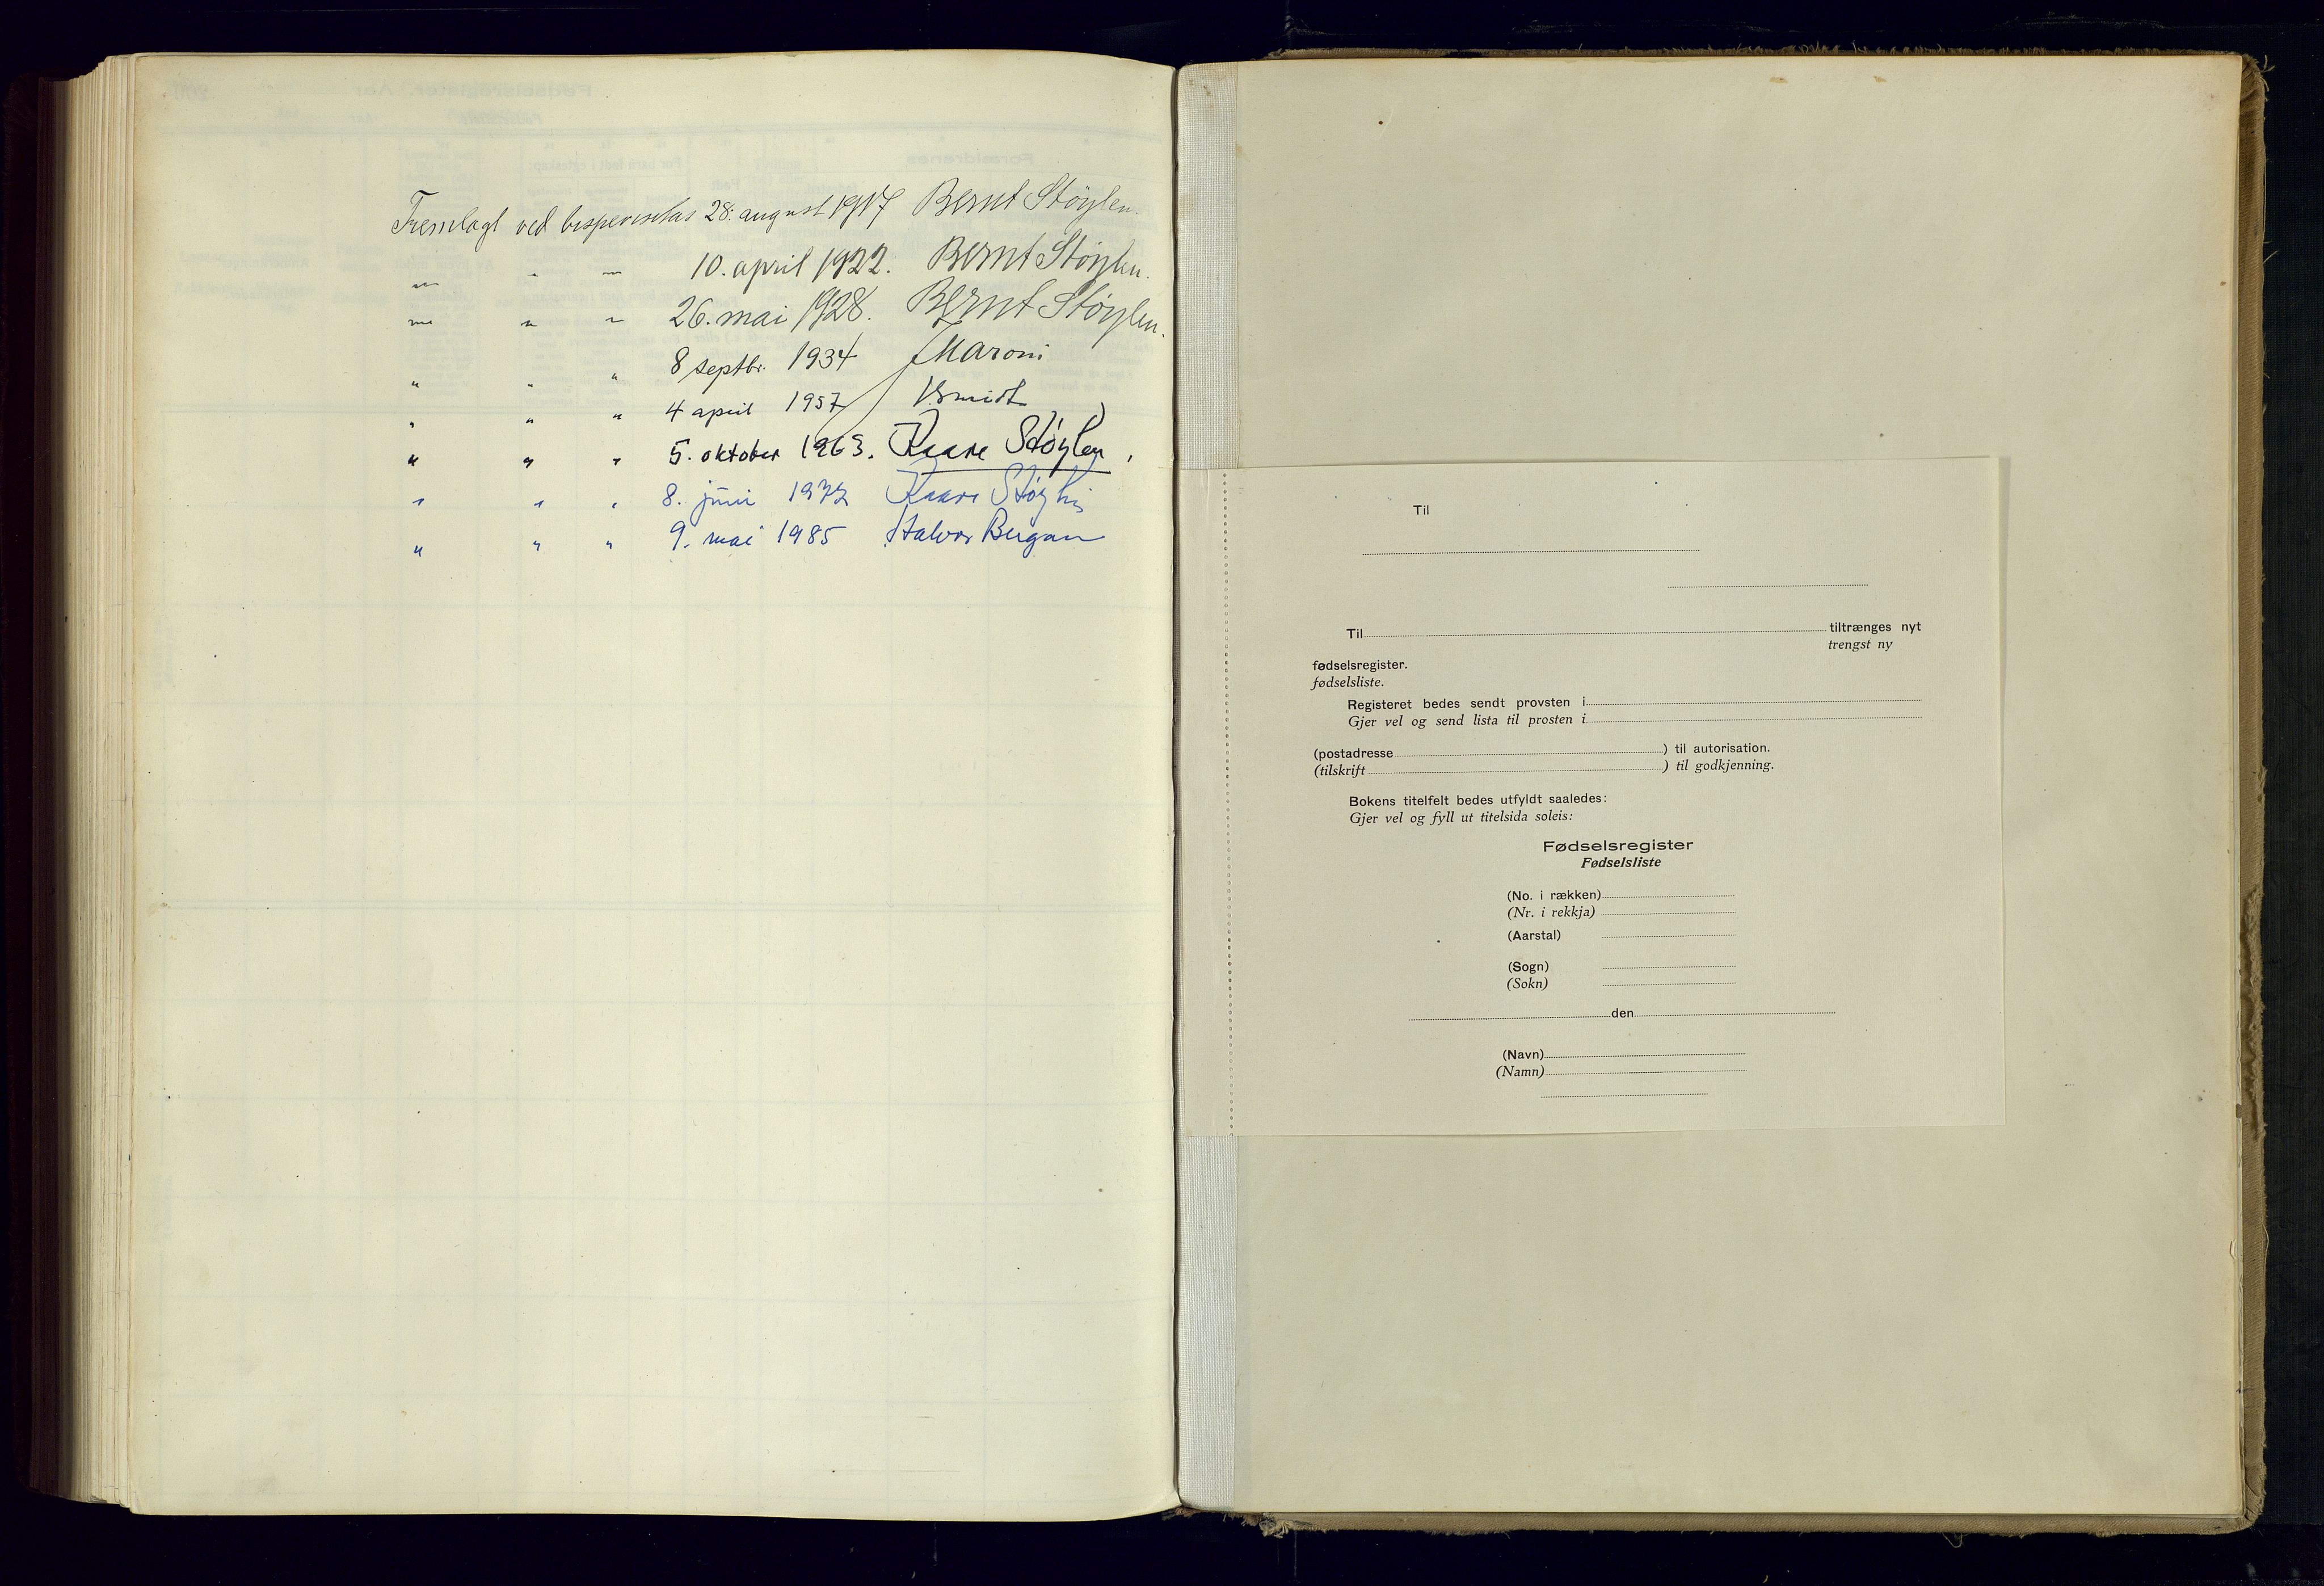 Fremlagt ved bispevisitas 28. august 1917 Bernt Støylen.
" " " 10. april 1922. Bernt Støylen.
" " " 26. mai 1928. Bernt Støylen.
" " " 8 septbr. 1934 J Maroni
" " " 4 april 1957 Smidt
" " " 5. oktober 1963. Kaare Støylen.
" " " 8. juni 1972 Kaare Støylen
" " " 9. mai 1985 Halvor Bergan
Til
Til tiltrænges nyt
trengst ny
fødselsregister.
fødselsliste.
Registeret bedes sendt provsten i
Gjer vel og send lista til prosten i
(postadresse ) til autorisation.
(tilskrift ) til godkjenning.
Bokens titelfelt bedes utfyldt saaledes:
Gjer vel og fyll ut titelsida soleis:
Fødselsregister
Fødselsliste
(No. i rækken)
(Nr. i rekkja)
(Aarstal)
(Sogn)
(Sokn)
den
(Navn)
(Namn)